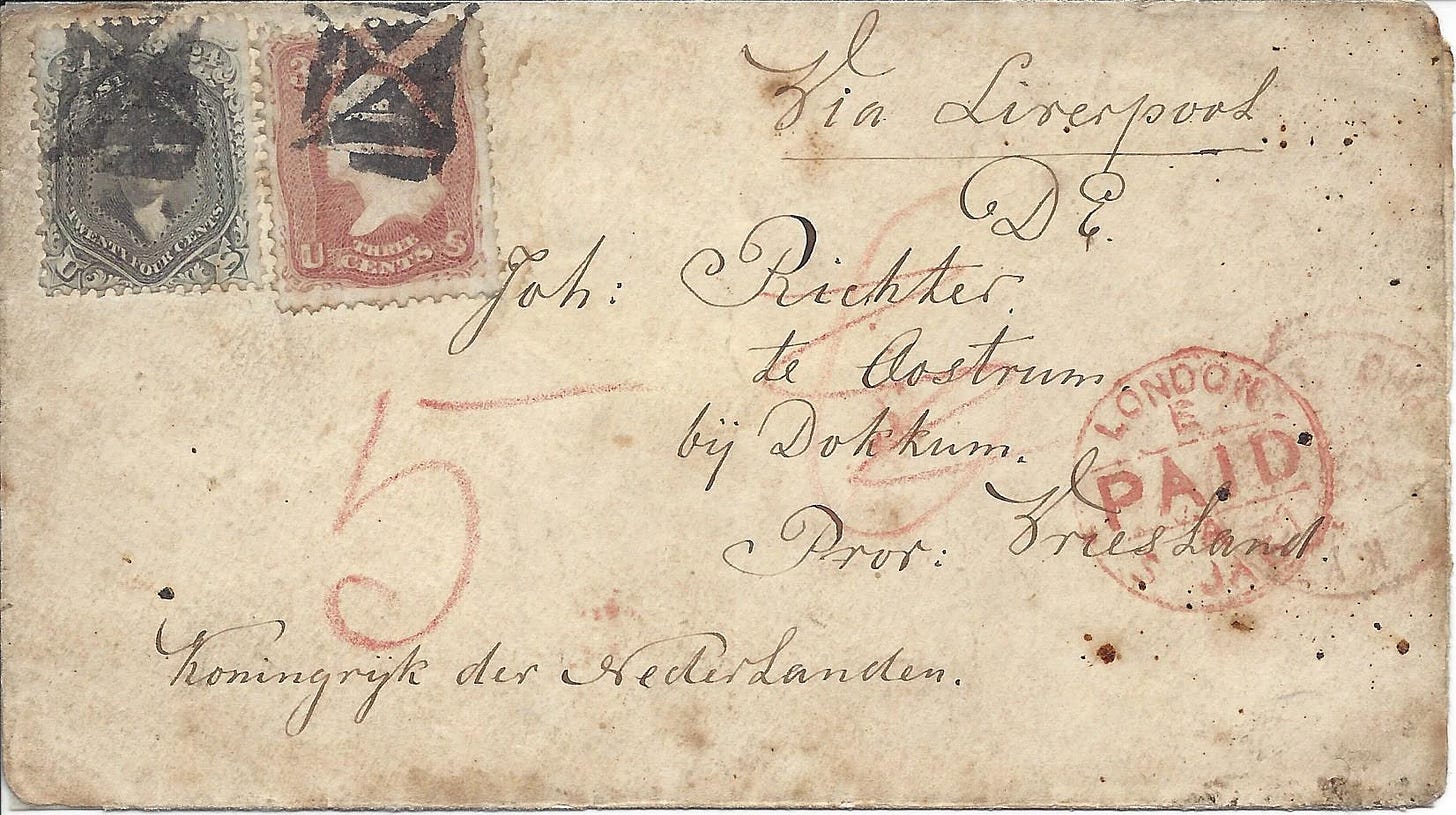 24
TWENTY FOUR CENTS
U S
3
U THREE S
CENTS
Via Liverpool
D E.
Joh: Richter
te Oostrum,
bij Dokkum.
Prov: Vriesland.
Koningrijk der Nederlanden.
5
LONDON
E
PAID
JA